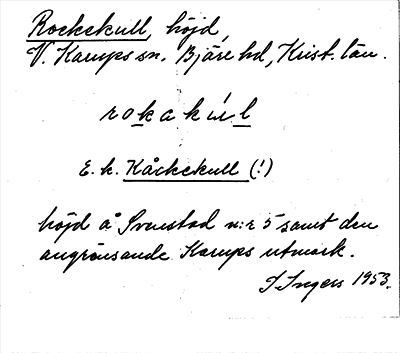 Rockekull, höjd,
V. Karups sn. Bjäre hd, Krist. län.
rokakúl
E. k. Kåckekull (!)
höjd å Svenstad n:r 5 samt den
angränsande Karups utmark.
I Ingers 1953.